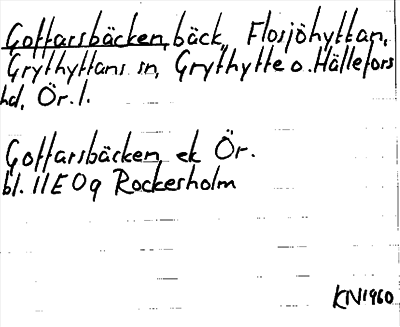 Gottarsbäcken, bäck, Flosjöhyttan,
Grythyttans sn, Grythytte o. Hällefors
hd, Ör. l.
Gottarsbäcken ek Ör.
bl. 11E 0g Rockesholm
KN1960